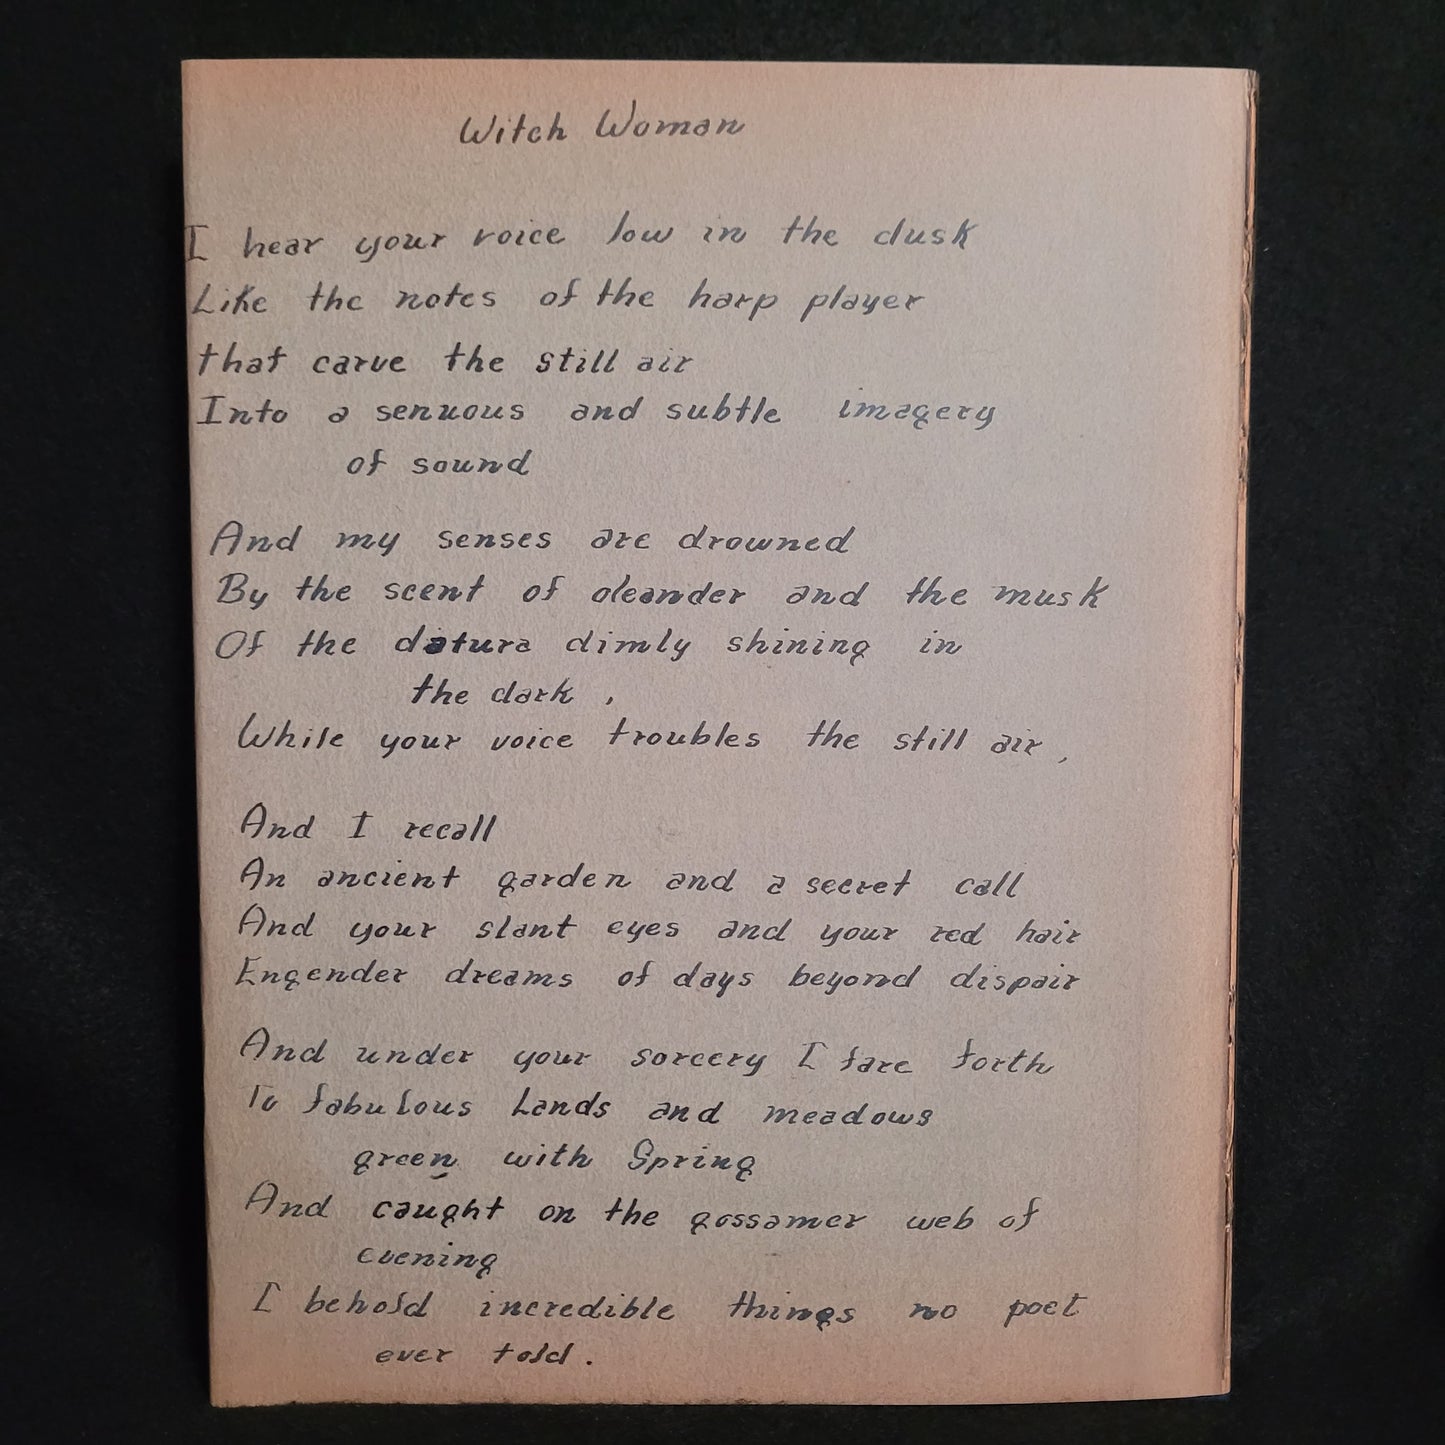 Witch Woman
I hear your voice low in the dusk
Like the notes of the harp player
that carve the still air
Into a senuous and subtle imagery
of sound
And my senses are drowned
By the scent of oleander and the musk
Of the datura dimly shining in
the dark ,
While your voice troubles the still air ,
And I recall
An ancient garden and a secret call
And your slant eyes and your red hair
Engender dreams of days beyond dispair
And under your sorcery I fare forth
To fabulous Lands and meadows
green with Spring
And caught on the gossamer web of
evening
I behold incredible things no poet
ever told .